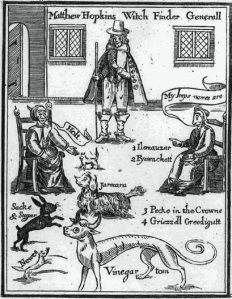 Matthew Hopkins Witch Finder Generall
My Imps names are
1 Ilemauzer
2 Pyewackett
Holt
Jarmara
3 Pecke in the Crowne
4 Griezzell Greedigutt
Sacke
& Sugar
Newes
Vinegar tom